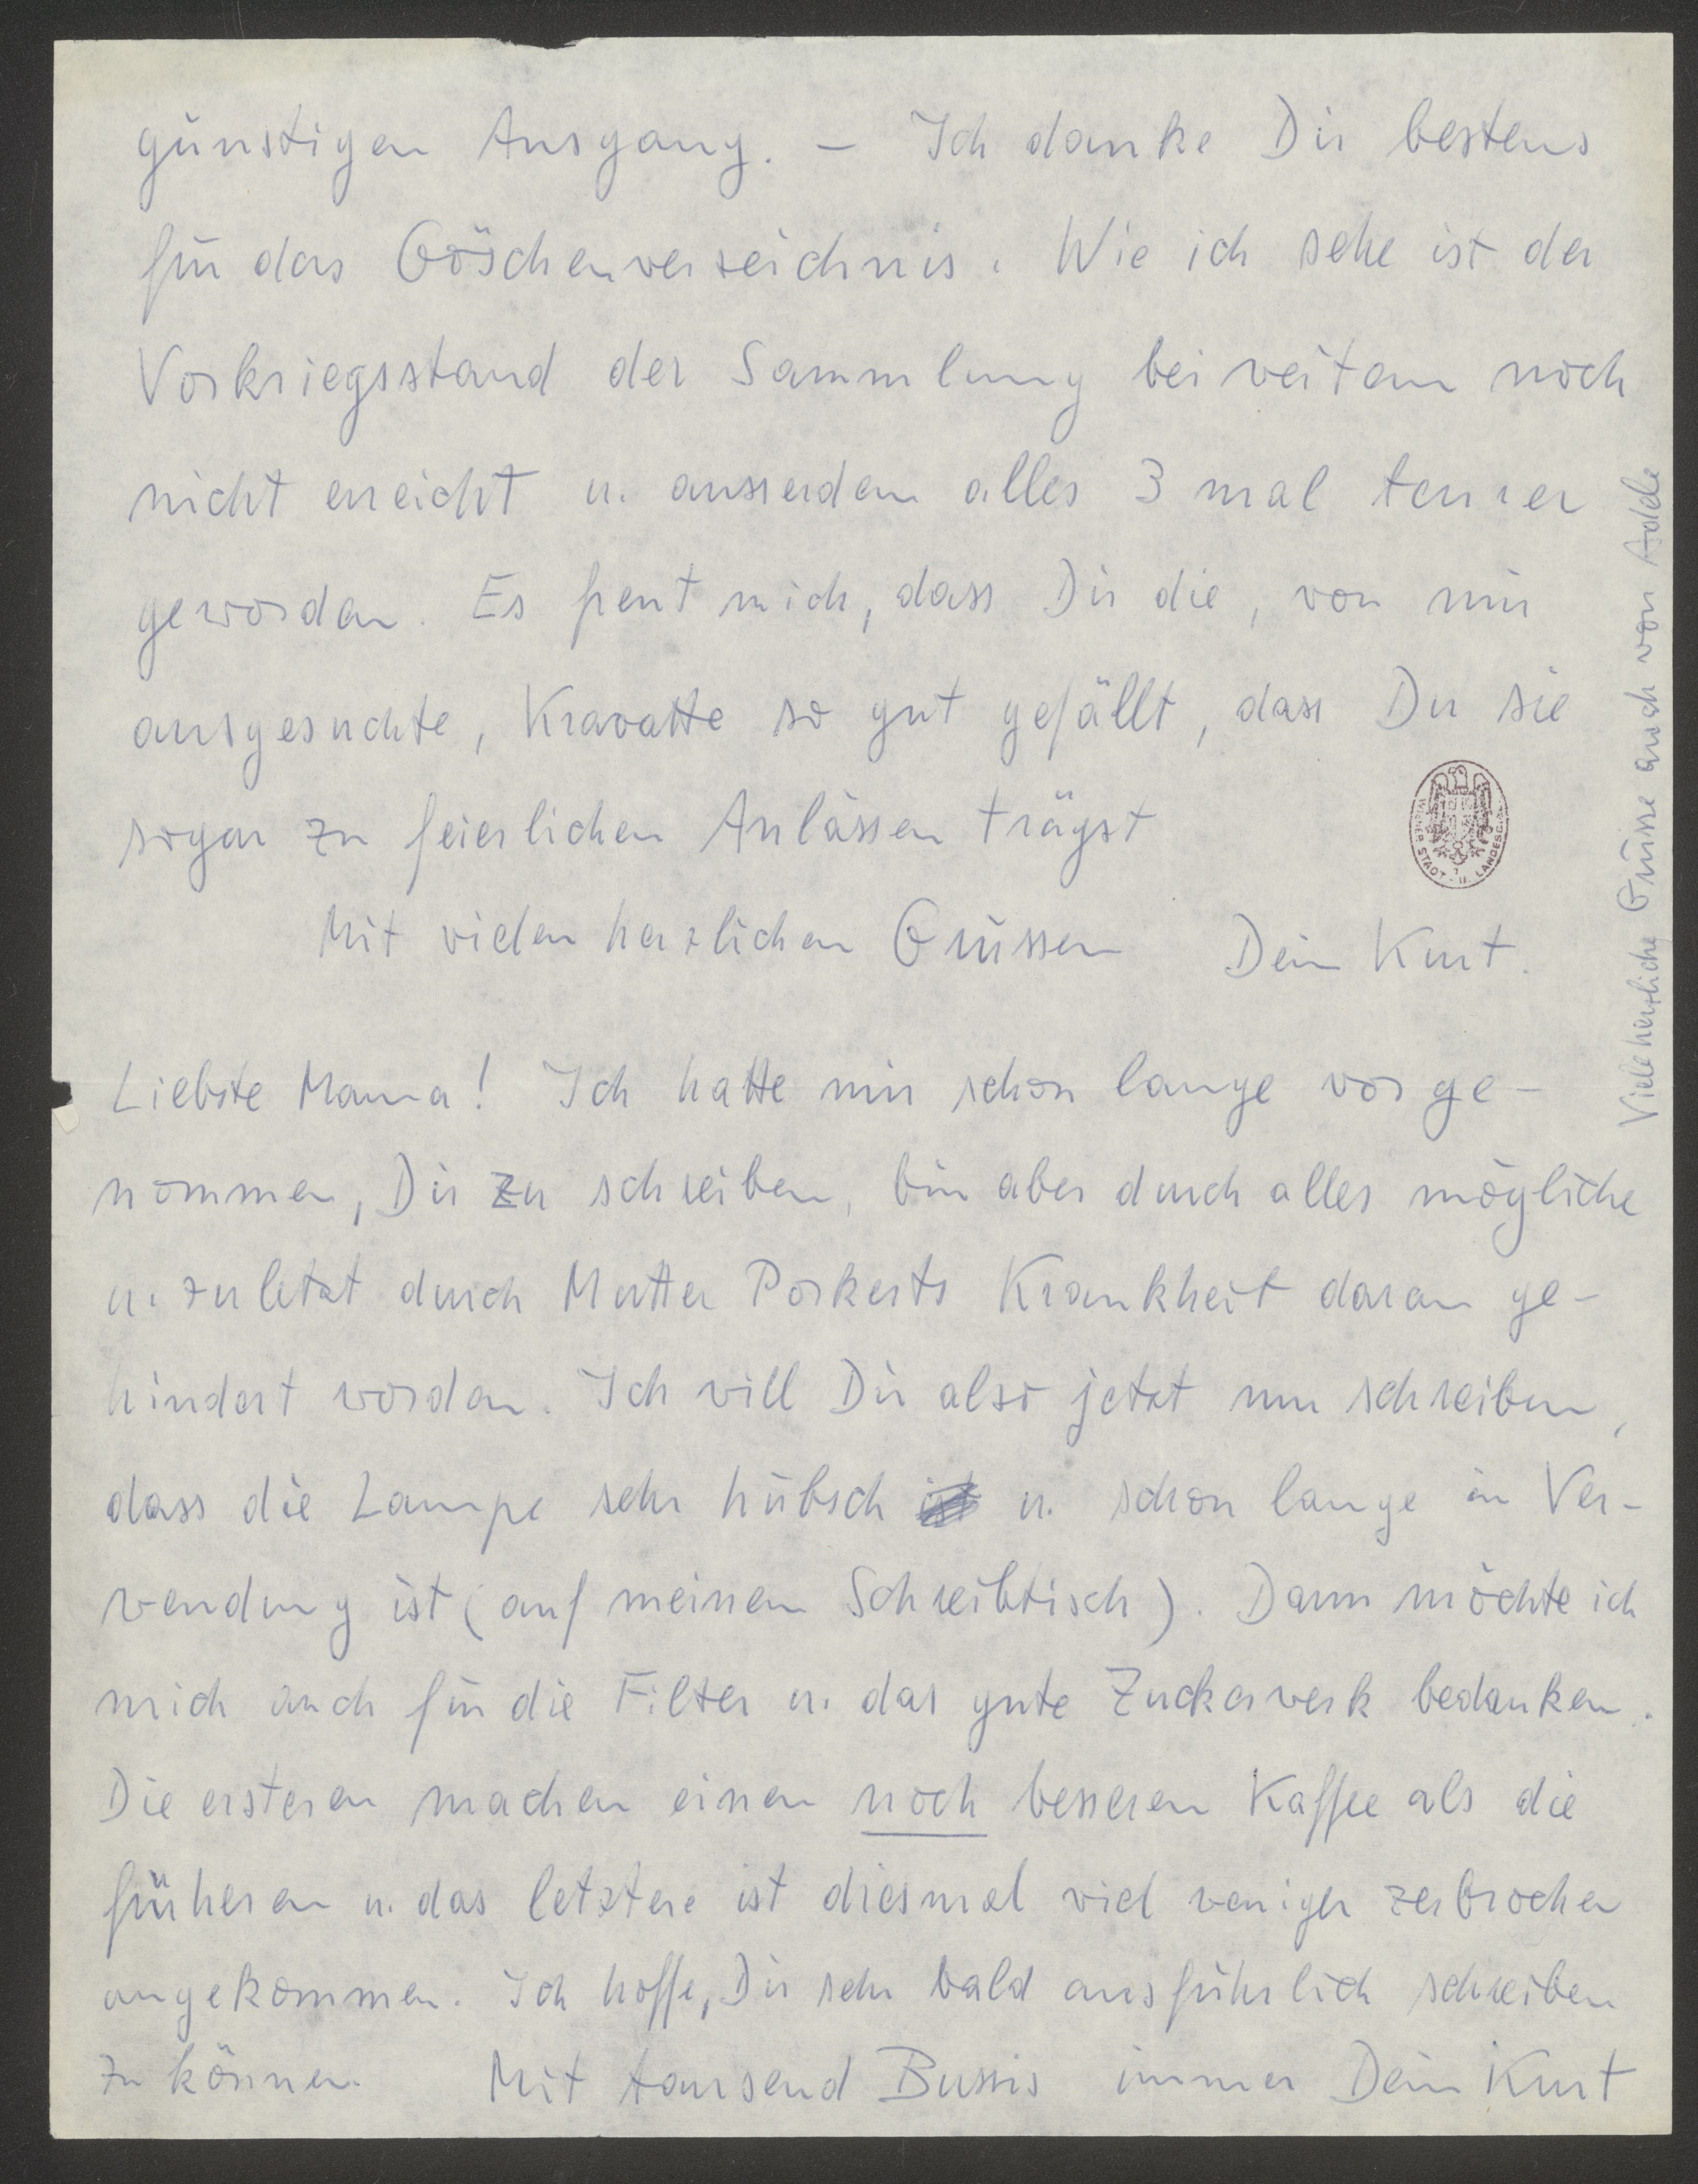 günstigen Ausgang. – Ich danke Dir bestens
für das Göschenverzeichnis. Wie ich sehe ist der
Vorkriegsstand der Sammlung bei weitem noch
nicht erreicht u. ausserdem alles 3 mal teurer
geworden. Es freut mich, dass Dir die, von mir
ausgesuchte, Kravatte so gut gefällt, dass Du sie
sogar zu feierlichen Anlässen trägst
Mit vielen herzlichen Grüssen Dein Kurt.
Liebste Mama! Ich hatte mir schon lange vorge-
nommen, Dir zu schreiben, bin aber durch alles mögliche
u. zuletzt durch Mutter Porkerts Krankheit daran ge-
hindert worden. Ich will Dir also jetzt nur schreiben,
dass die Lampe sehr hübsch u. schon lange in Ver-
wendung ist (auf meinem Schreibtisch). Dann möchte ich
mich auch für die Filter u. das gute Zuckerwerk bedanken.
Die ersteren machen einen noch besseren Kaffee als die
früheren u. das letztere ist diesmal viel weniger zerbrochen
angekommen. Ich hoffe, Dir sehr bald ausführlich schreiben
zu können. Mit tausend Bussis immer Dein Kurt
Viele herzliche Grüsse auch von Adele
WIENER STADT- U. LANDESBIBL.